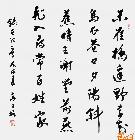 朱雀橋邊野草花
烏衣巷口夕陽斜
舊時王謝堂前燕
飛入尋常百姓家